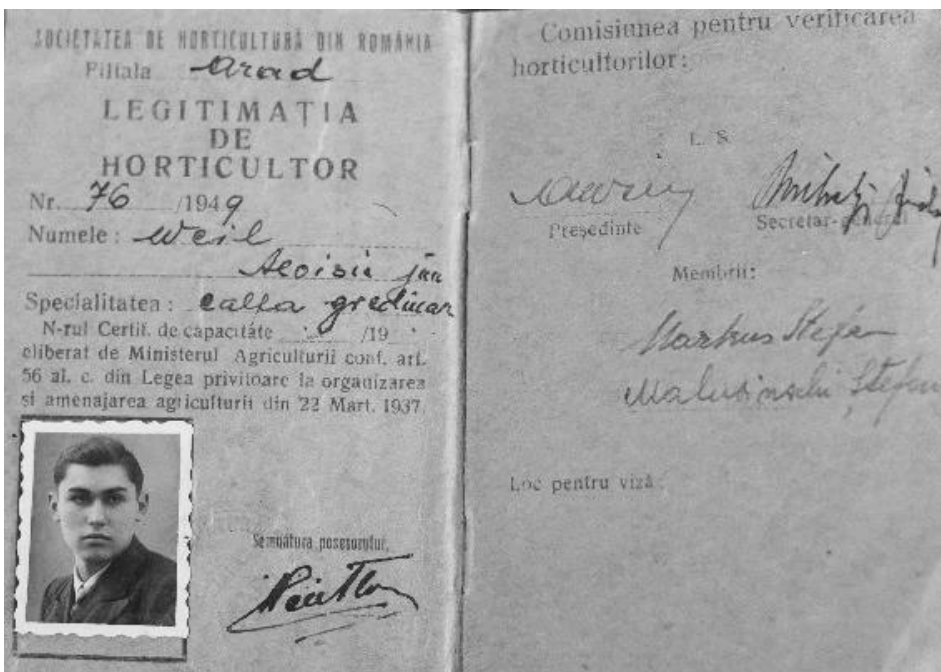 SOCIETATEA DE HORTICULTURĂ DIN ROMÂNIA
Filiala Arad
LEGITIMAȚIA
DE
HORTICULTOR
Nr. 76 /1949
Numele: Weil
Aloisiu jun
Specialitatea: calfa gredinar
N-rul Certif. de capacitate /19
eliberat de Ministerul Agriculturii conf. art.
56 al. c. din Legea privitoare la organizarea
și amenajarea agriculturii din 22 Mart. 1937.
Semnătura posesorului,
Comisiunea pentru verificarea
horticultorilor:
L. S.
Președinte
Secretar-general
Membrii:
Markus Stefan
Malusinschi Ștefan
Loc pentru viză: